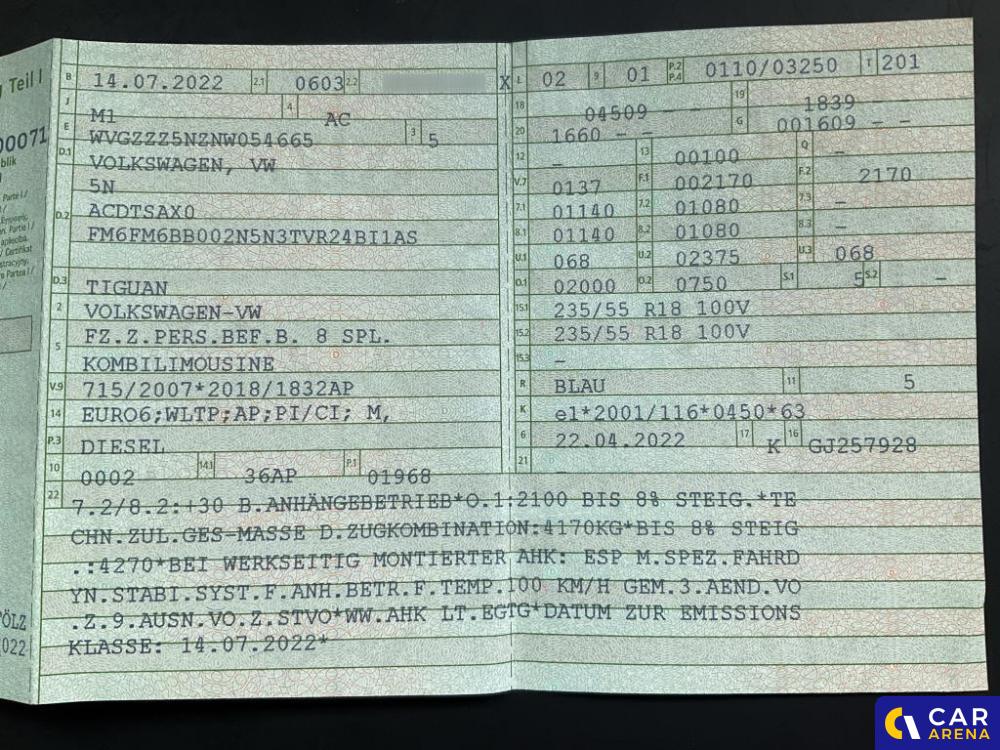 Teil I
B 14.07.2022 2.1 0603 2.2 X
J M1 4 AC
E WVGZZZ5NZNW054665 3 5
D.1 VOLKSWAGEN, VW
5N
D.2 ACDTSAX0
FM6FM6BB002N5N3TVR24BI1AS
D.3 TIGUAN
2 VOLKSWAGEN-VW
5 FZ.Z.PERS.BEF.B. 8 SPL.
KOMBILIMOUSINE
V.9 715/2007*2018/1832AP
14 EURO6;WLTP;AP;PI/CI; M,
P.3 DIESEL
10 0002 14.1 36AP P.1 01968
L 02 9 01 P.2 P.4 0110/03250 T 201
18 04509 - - 19 1839 - -
20 1660 - - G 001609 - -
12 - 13 00100 Q -
V.7 0137 F.1 002170 F.2 2170
7.1 01140 7.2 01080 7.3 -
8.1 01140 8.2 01080 8.3 -
U.1 068 U.2 02375 U.3 068
O.1 02000 O.2 0750 S.1 5 S.2 -
15.1 235/55 R18 100V
15.2 235/55 R18 100V
15.3 -
R BLAU 11 5
K e1*2001/116*0450*63
6 22.04.2022 17 K 16 GJ257928
21 -
22 7.2/8.2:+30 B.ANHÄNGEBETRIEB*O.1:2100 BIS 8% STEIG.*TE
CHN.ZUL.GES-MASSE D.ZUGKOMBINATION:4170KG*BIS 8% STEIG
.:4270*BEI WERKSEITIG MONTIERTER AHK: ESP M.SPEZ.FAHRD
YN.STABI.SYST.F.ANH.BETR.F.TEMP.100 KM/H GEM.3.AEND.VO
.Z.9.AUSN.VO.Z.STVO*WW.AHK LT.EGTG*DATUM ZUR EMISSIONS
KLASSE: 14.07.2022*
CAR
ARENA